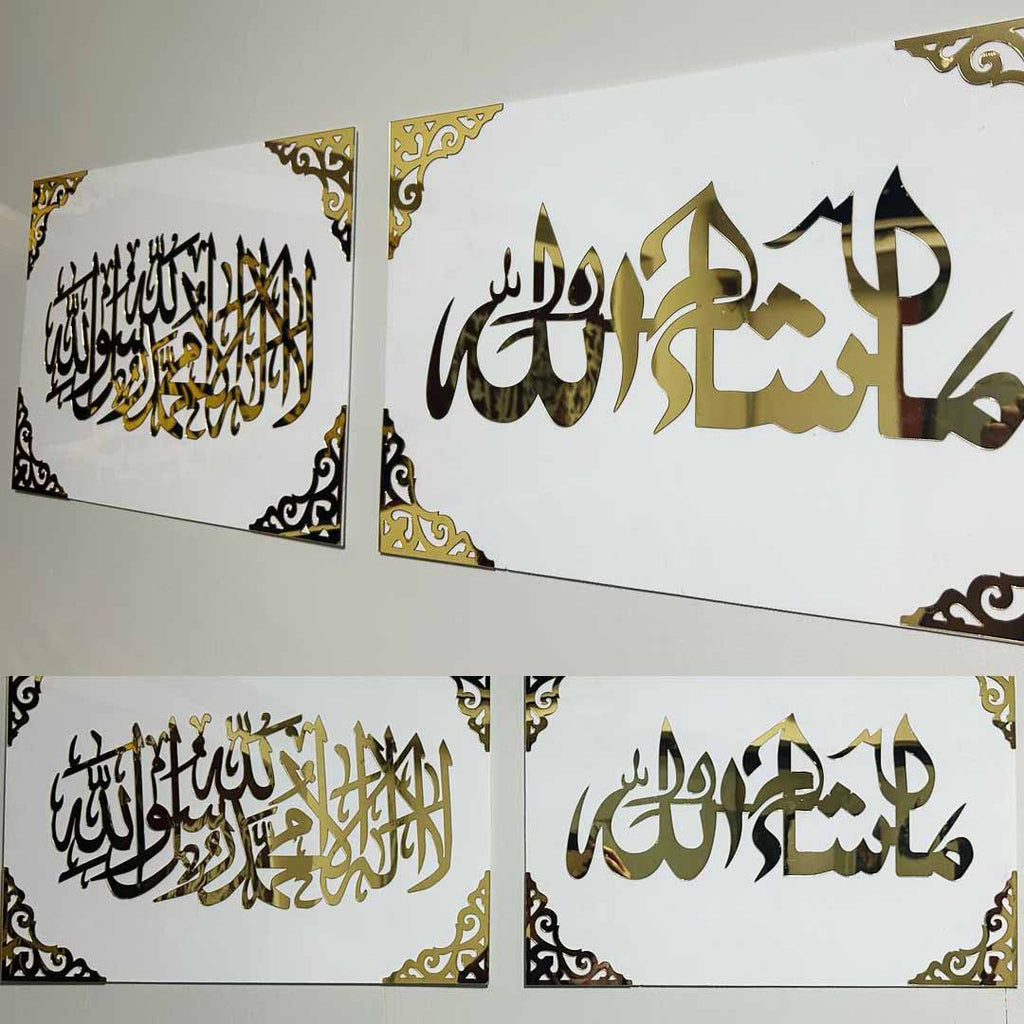 لا إله إلا الله محمد رسول الله
ما شاء الله
لا إله إلا الله محمد رسول الله
ما شاء الله